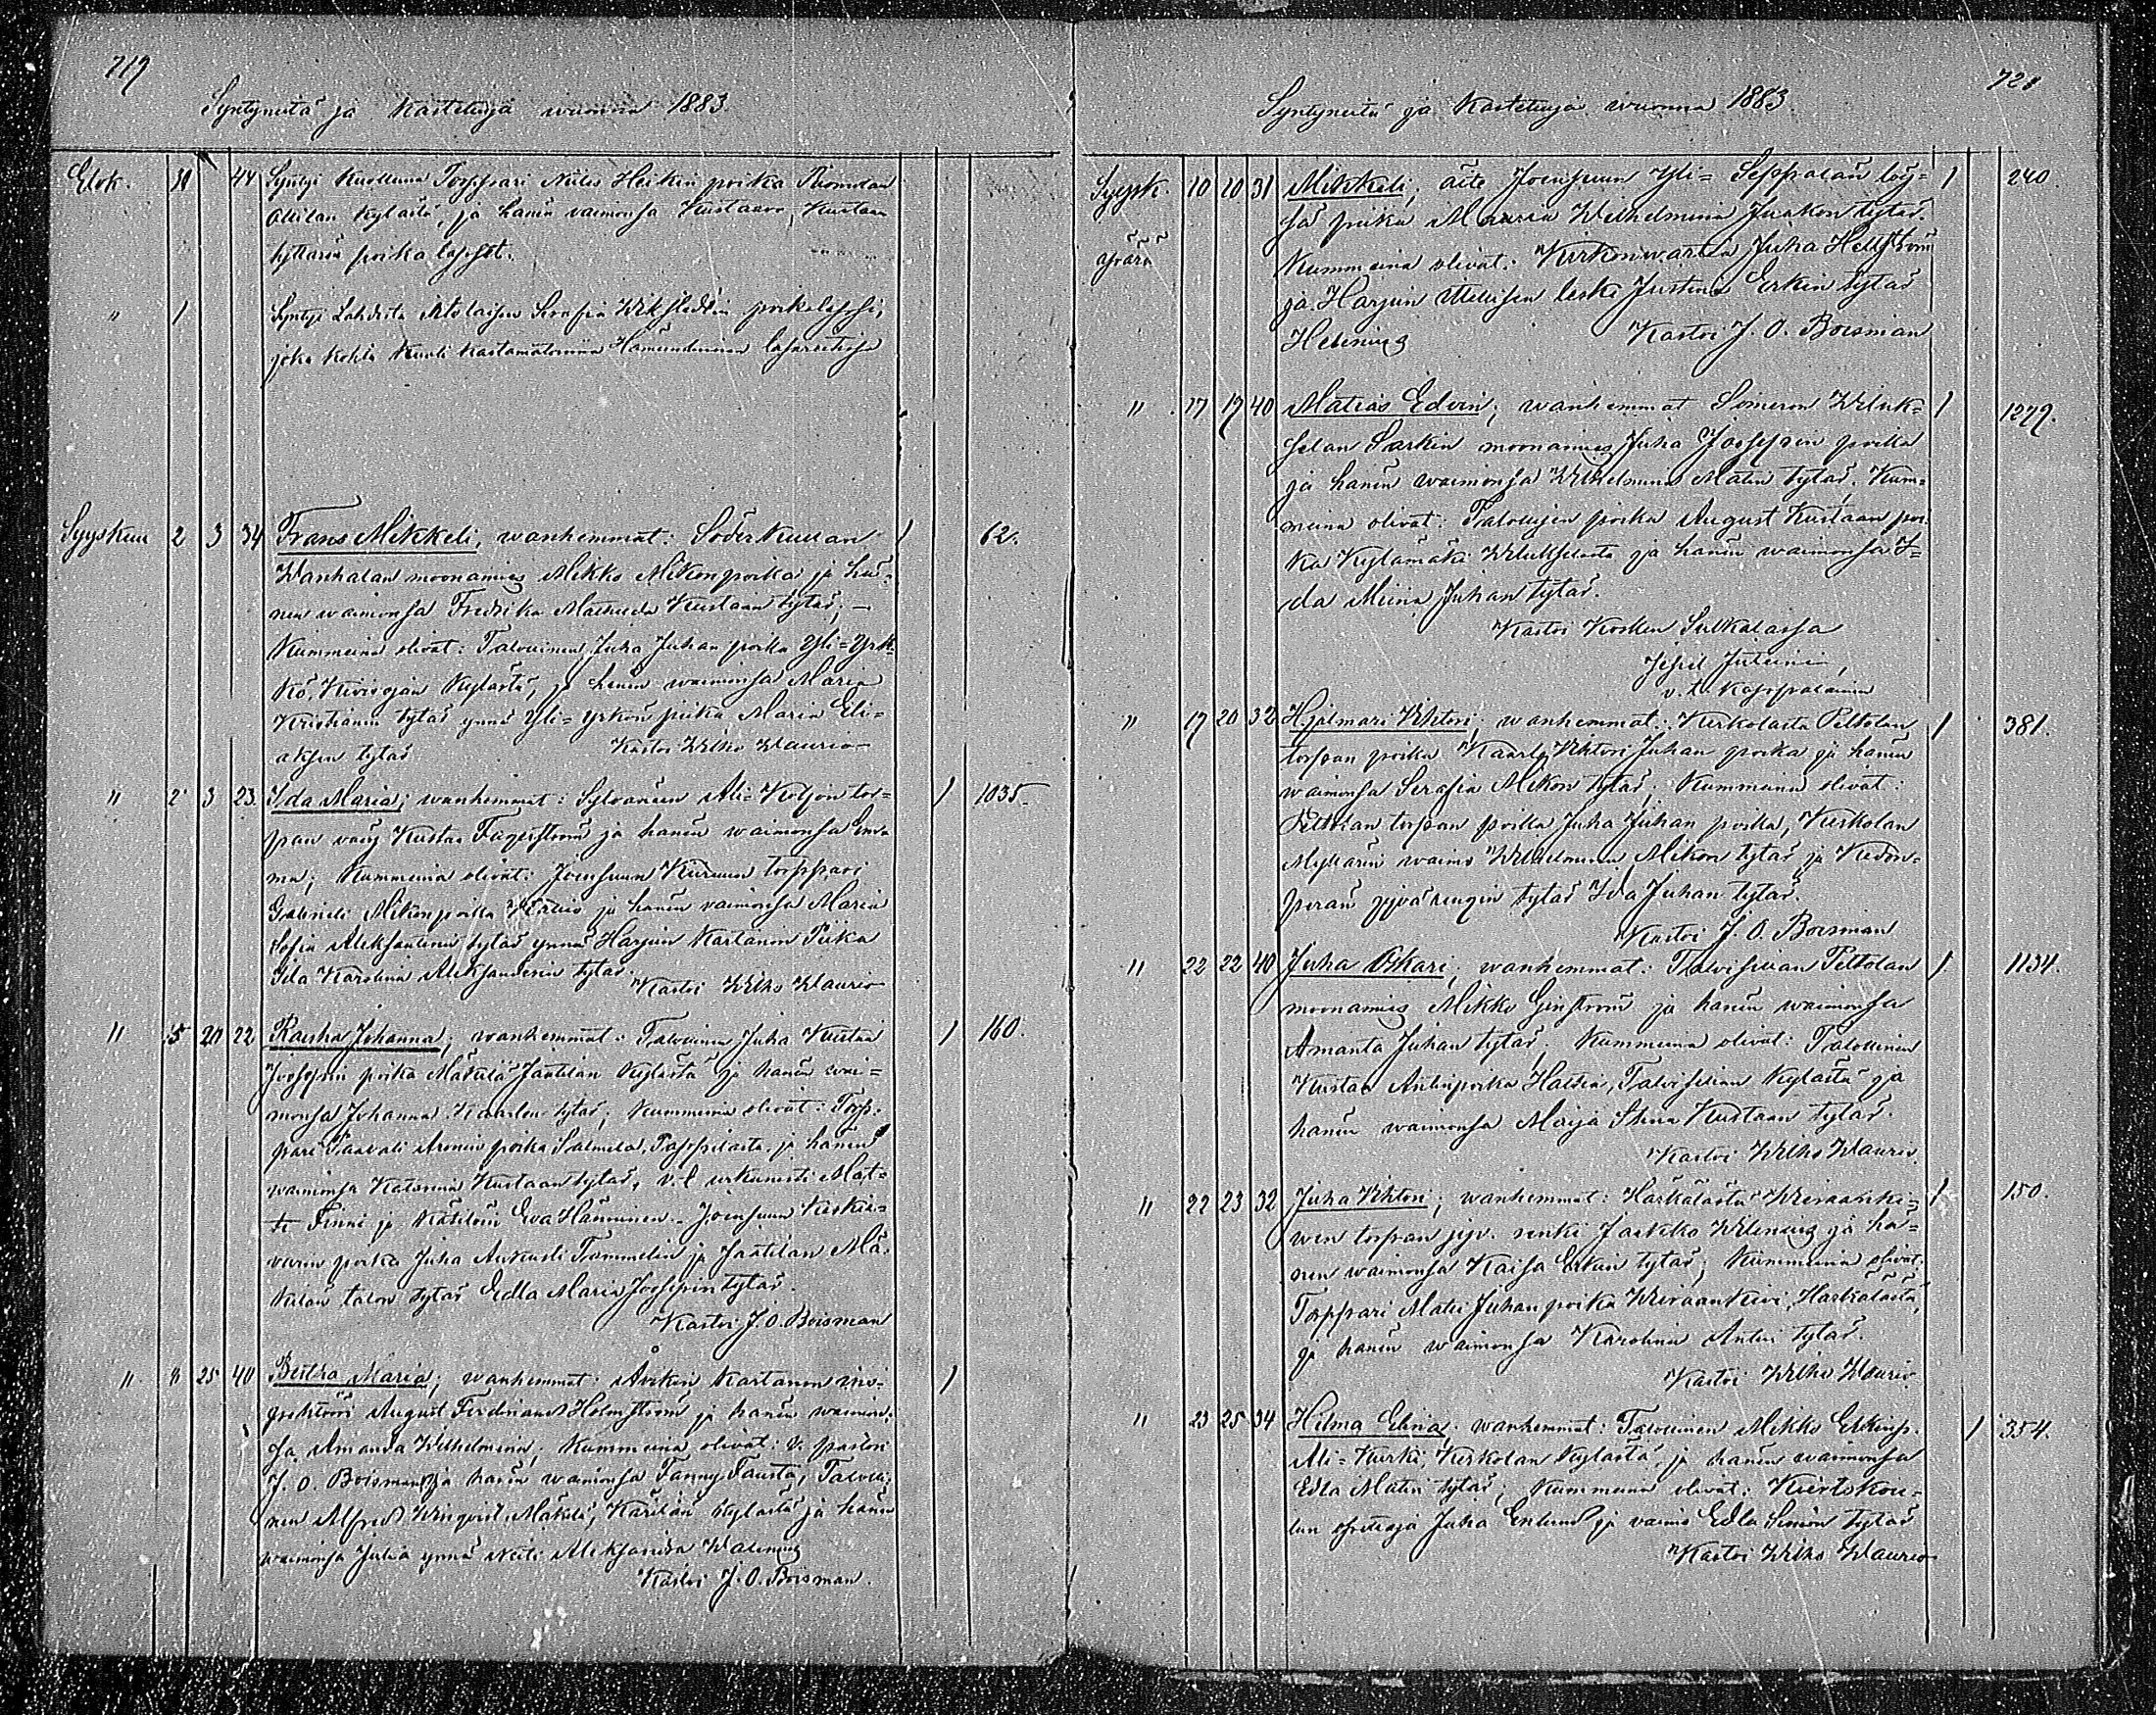 719
Syntyneitä ja kastetuja wuonna 1883
Elok. 30 44 Syntyi kuolluna Torppari Niilo Heikin poika
kylästä, ja hänen vaimonsa Kustaava, Kustaan
tyttären poika lapset.
" 1 Syntyi Serafia poikalapsi,
joka kohta kuoli kastamatonna Hämeenlinnan lasaretissa
Syyskuu 2 3 34 Frans Mikkeli, wanhemmat: Söderkullan 1 62.
Wanhalan moonamies Mikko Mikonpoika ja hä-
nen waimonsa Fredrika Mathilda Kustaan tytär; –
Kummeina olivat: Talollinen Juha Juhan poika Yli=Yrk-
kö, Kivisojan kylästä, ja hänen waimonsa Maria
Kristianin tytär ynnä Yli=Yrkön piika Maria Eli=
aksen tytär Kastoi Wilho Waurio
" 2 3 23. Ida Maria; wanhemmat: Sylvänään Ali=Koljon tor=
pan väy Kustaa Fagerström ja hänen waimonsa Em-
ma; Kummeina olivat: Joensuun torppari
Gabrieli Mikonpoika ja hänen vaimonsa Maria
Sofia Aleksanterin tytär ynnä Harjun Kartanon Piika
Ida Karolina Aleksanderin tytär. Kastoi Wilho Waurio
1 1035.
" 5 20 22 Rauha Johanna; wanhemmat: Talollinen Juha Kustaa 1 160.
Joosepin poika Mäkilä Jäätilän kylästä ja hänen wai=
monsa Johanna Kaarlon tytär; Kummeina olivat: Torp-
pari Paavali Aronin poika Salmela, Pappilasta, ja hänen
waimonsa Katarina Kustaan tytär, v.t. urkunisti Mat-
ti Finni ja Eva Hänninen. Joensuun
poika Juha Aukusti Tammelin ja Jäätilän Mä-
kilän talon tytär Edla Maria Joosepin tytär.
Kastoi J. O. Boisman
" 8 25 40 Bertha Maria; wanhemmat: Åvikin Kartanon ins-
pehtööri August Ferdinand Holmström ja hänen waimon-
sa Amanda Wilhelmina; Kummeina olivat: v. pastori
J. O. Boisman ja hänen waimonsa Fanny Fausta, Talolli-
nen Alfred Winqvist Mäkelä, kylästä ja hänen
waimonsa Julia ynnä Neiti Aleksandra Walenius
Kastoi J. O. Boisman.
1
728
Syntyneitä ja kastetuja wuonna 1883.
Syysk. 10 10 31 Mikkeli; äite Joensuun Yli=Seppälän löy= 1 240.
sä piika Maria Wilhelmina Jaakon tytär.
Kummeina olivat: Kirkonwartia Juha Hellström
ja Harjun leski Justina Erkin tytär
Helenius Kastoi J. O. Boisman
" 17 19 40 Matias Edvin; wanhemmat Someron Wiluk= 1 1279.
selan Särkin moonamies Juha Joosepin poika
ja hänen waimonsa Wilhelmina Matin tytär. Kum=
meina olivat: Talollisen poika August Kustaan poi-
ka Kylämäki Wilukselasta ja hänen waimonsa I=
da Miina Juhan tytär.
Kastoi Kosken Sulkalassa
v.t. Kappalainen
" 17 20 32 Hjalmari Vihtori; wanhemmat: Kerkolasta Peltolan 1 381.
torpan poika Kaarle Vihtori Juhan poika ja hänen
waimonsa Serafia Mikon tytär; Kummeina olivat:
Peltolan torpan poika Juha Juhan poika, Kerkolan
Myllärin waimo Wilhelmina Mikon tytär ja Kedon-
perän jyvärengin tytär Ida Juhan tytär.
Kastoi J. O. Boisman
" 22 22 40 Juha Oskari; wanhemmat: Talvisillan Peltolan 1 1134.
moonamies Mikko Genström ja hänen waimonsa
Amanta Juhan tytär. Kummeina olivat: Talollinen
Kustaa Antinpoika Talvisillan kylästä ja
hänen waimonsa Maija Stiina Kustaan tytär.
Kastoi Wilho Waurio.
" 22 23 32 Juha Vihtori; wanhemmat: Härkälästä Wieraanki= 1 150.
wen torpan jyv. renki Jaakko Wilenius ja hä=
nen waimonsa Kaisa Erkin tytär; Kummeina olivat:
Torppari Matti Juhan poika Wieraankivi, Härkälästä,
ja hänen waimonsa Karolina Antin tytär.
Kastoi Wilho Waurio
" 23 25 34 Hilma Elina; wanhemmat: Talollinen Mikko Erkinp. 1 354.
Ali=Kurki, Kerkolan kylästä, ja hänen waimonsa
Edla Matin tytär; Kummeina olivat: Kiertokou-
lun opettaja Juha Enlund ja vaimo Edla Simon tytär
Kastoi Wilho Waurio